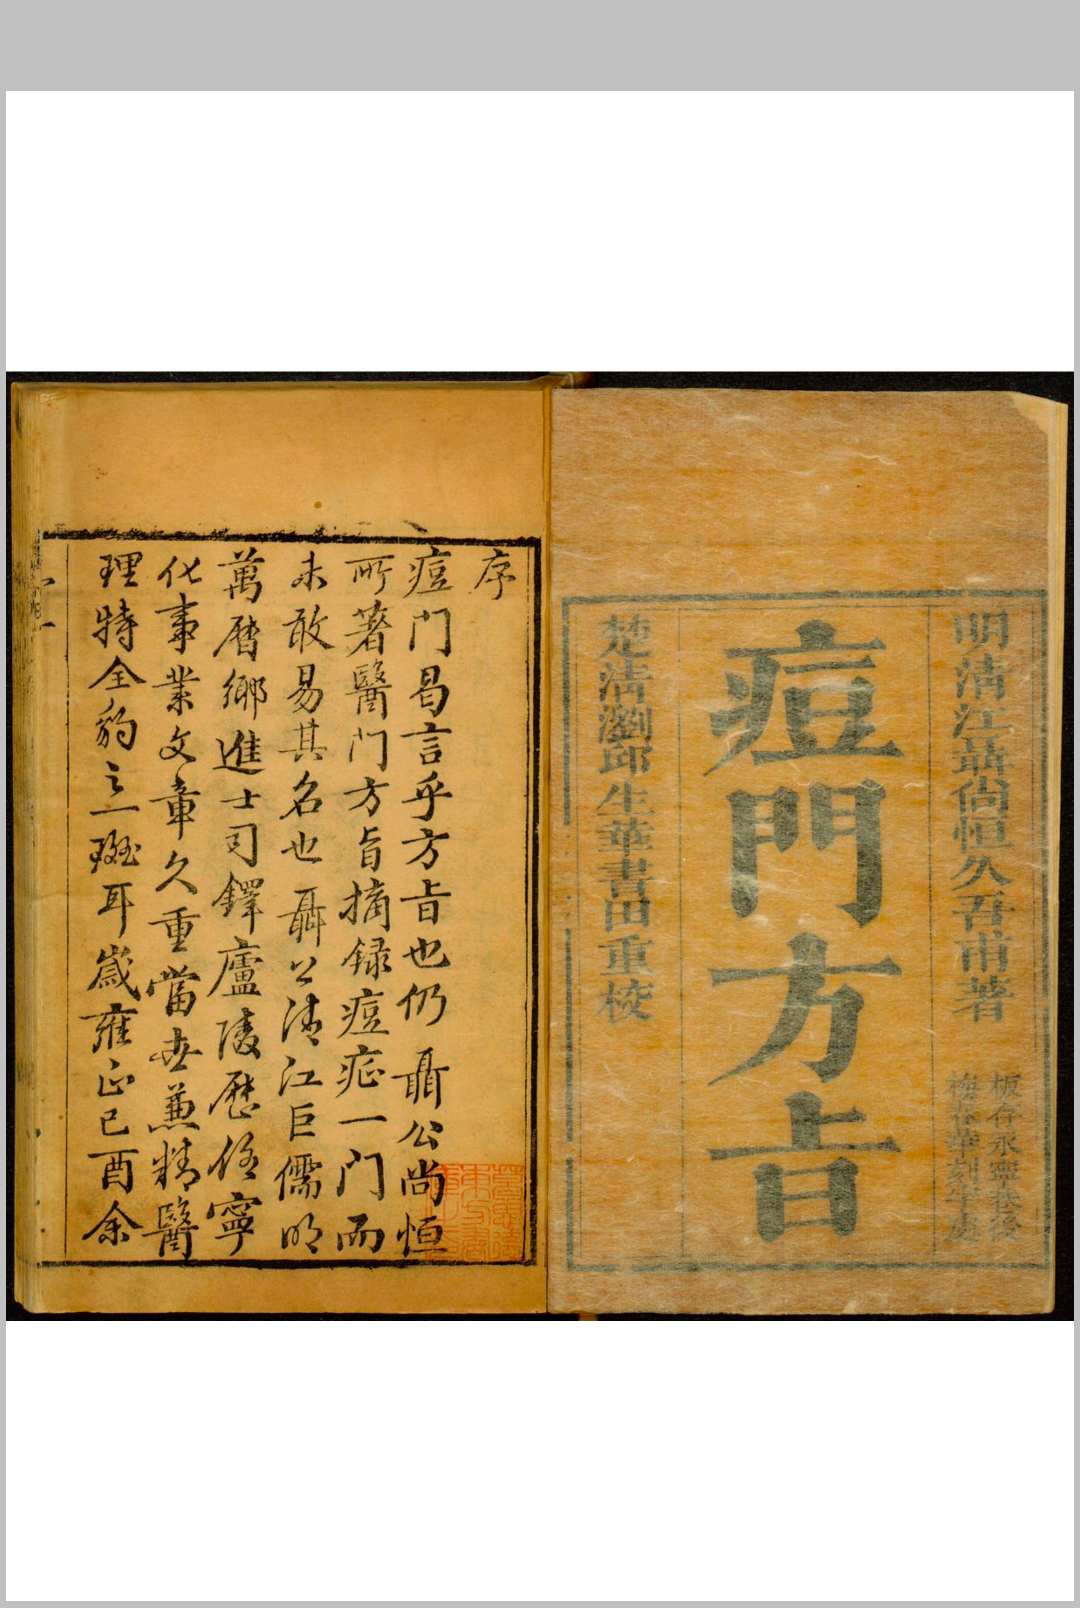 明清江聶尚恒久吾甫著
板存永寧巷後
梅存華刻字處
痘門方旨
楚清瀏邱生華書田重校
序
痘門曷言乎方旨也仍聶公尚恒
所著醫門方旨摘録痘症一門而
未敢易其名也聶公清江巨儒明
萬曆鄉進士司鐸廬陵歷任寧
化事業文章久重當世兼精醫
理特全豹之一斑耳歲雍正己酉余